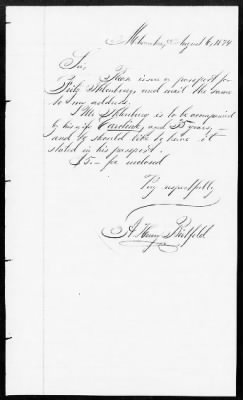 Milwaukee, August 6, 1874
Sir,
Please issue a passport for
Fritz and mail the same
to my address.
Mr. is to be accompanied
by his wife Caroline, aged 35 years,
and he should like to have it
stated in his passport.
$5.— fee inclosed
Very respectfully
A. Henry Bielfeld